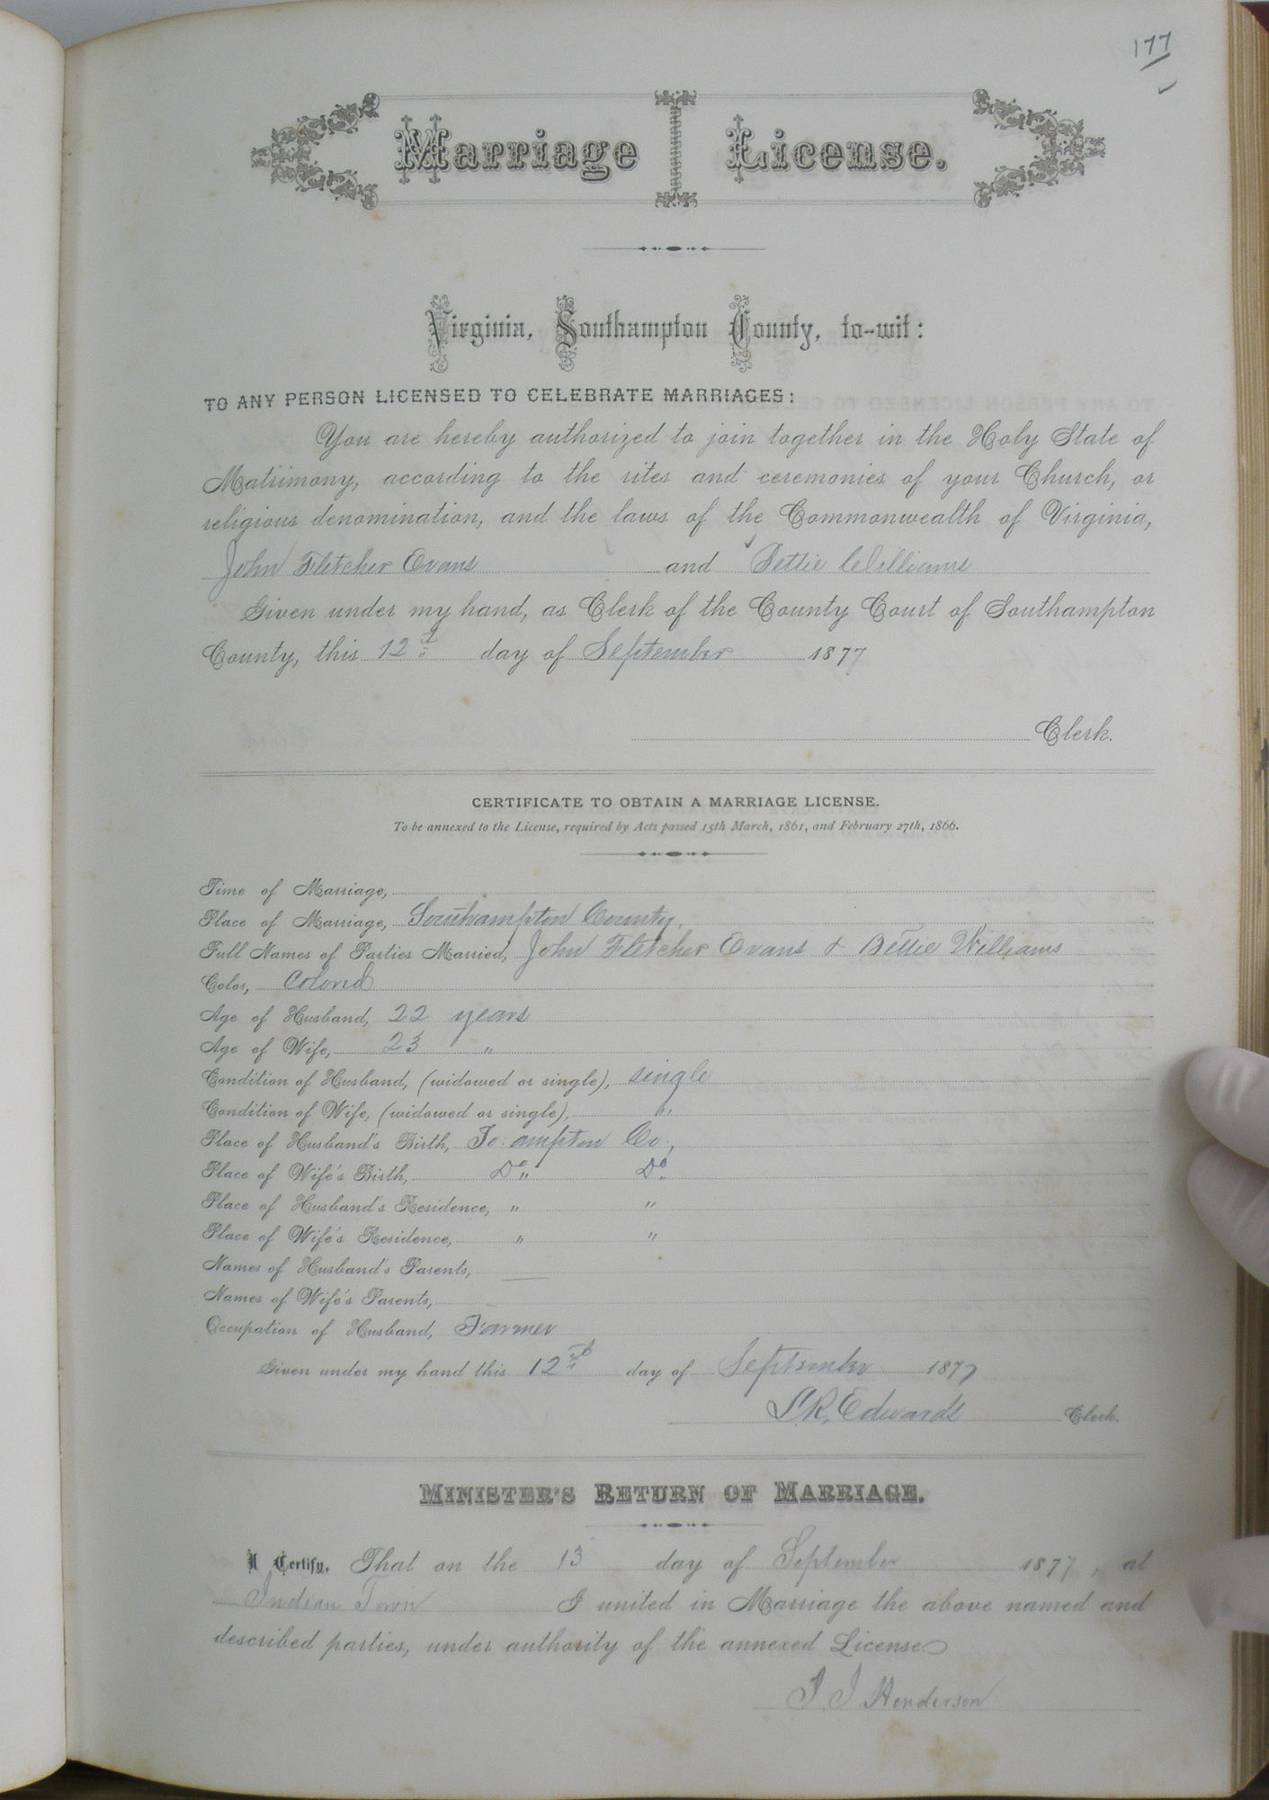 177
Marriage License.
Virginia, Southampton County, to-wit:
TO ANY PERSON LICENSED TO CELEBRATE MARRIAGES:
You are hereby authorized to join together in the Holy State of
Matrimony, according to the rites and ceremonies of your Church, or
religious denomination, and the laws of the Commonwealth of Virginia,
John Fletcher Evans and Bettie Williams
Given under my hand, as Clerk of the County Court of Southampton
County, this 12th day of September 1877
Clerk.
CERTIFICATE TO OBTAIN A MARRIAGE LICENSE.
To be annexed to the License, required by Acts passed 15th March, 1861, and February 27th, 1866.
Time of Marriage,
Place of Marriage, Southampton County,
Full Names of Parties Married, John Fletcher Evans & Bettie Williams
Color, Colored
Age of Husband, 22 years
Age of Wife, 23 "
Condition of Husband, (widowed or single), single
Condition of Wife, (widowed or single), "
Place of Husband's Birth, So. ampton Co.,
Place of Wife's Birth, Do " Do
Place of Husband's Residence, " "
Place of Wife's Residence, " "
Names of Husband's Parents, —
Names of Wife's Parents,
Occupation of Husband, Farmer
Given under my hand this 12th day of September 1877
L. R. Edwards Clerk.
MINISTER'S RETURN OF MARRIAGE.
I Certify, That on the 13 day of September 1877, at
Indian Town I united in Marriage the above named and
described parties, under authority of the annexed License
J. J. Henderson